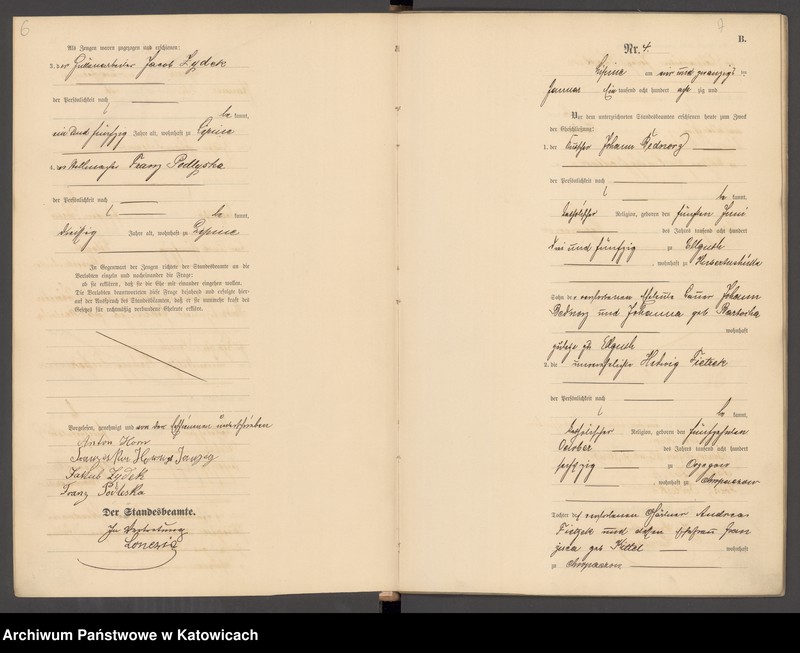 6
Als Zeugen waren zugezogen und erschienen:
3. der Hüttenarbeiter Jacob Zydek
der Persönlichkeit nach
be kannt,
ein und fünfzig Jahre alt, wohnhaft zu Lipine
4. der Franz Podleska
der Persönlichkeit nach
be kannt,
dreißig Jahre alt, wohnhaft zu Lipine
In Gegenwart der Zeugen richtete der Standesbeamte an die
Verlobten einzeln und nacheinander die Frage:
ob sie erklären, daß sie die Ehe mit einander eingehen wollen.
Die Verlobten beantworteten diese Frage bejahend und erfolgte hier-
auf der Ausspruch des Standesbeamten, daß er sie nunmehr kraft des
Gesetzes für rechtmäßig verbundene Eheleute erkläre.
Vorgelesen, genehmigt und von den Erschienenen unterschrieben
Anton
Jakub Zydek
Franz Podleska
Der Standesbeamte.
In Vertretung
7
B.
Nr. 4.
Lipine am vier und zwanzig ten
Januar Ein tausend acht hundert acht zig und
Vor dem unterzeichneten Standesbeamten erschienen heute zum Zweck
der Eheschließung:
1. der Kutscher Johann Bednorz
der Persönlichkeit nach
be kannt,
katholischer Religion, geboren den fünften Juni
des Jahres tausend acht hundert
drei und fünfzig zu Ellguth
, wohnhaft zu Hubertushütte
Sohn der verstorbenen Eheleute Bauer Johann
Bednorz und Johanna geb
wohnhaft
zuletzt zu Ellguth
2. die unverehelichte Hedwig Fietzek
der Persönlichkeit nach
be kannt,
katholischer Religion, geboren den fünfzehnten
October des Jahres tausend acht hundert
sechzig zu
, wohnhaft zu Chropaczow
Tochter des verstorbenen Gärtner Andreas
Fietzek und dessen Ehefrau Fran
zisca geb Kittel wohnhaft
zu Chropaczow
Archiwum Państwowe w Katowicach